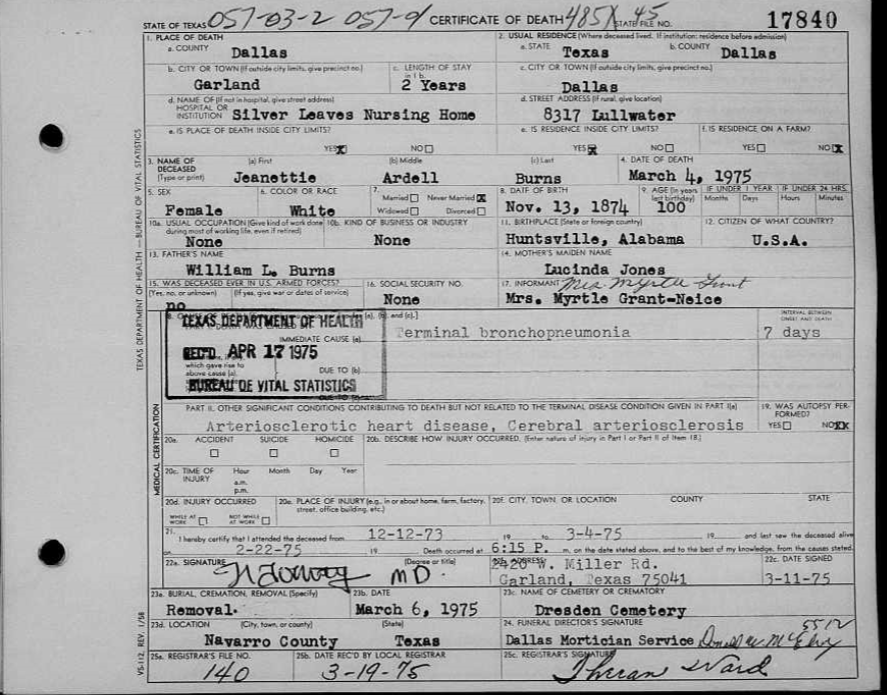 STATE OF TEXAS 057-03-2 057-01 CERTIFICATE OF DEATH 485X 45 STATE FILE NO. 17840
1. PLACE OF DEATH 2. USUAL RESIDENCE (Where deceased lived. If institution: residence before admission)
a. COUNTY Dallas a. STATE Texas b. COUNTY Dallas
b. CITY OR TOWN (If outside city limits, give precinct no.) c. LENGTH OF STAY in 1b. c. CITY OR TOWN (If outside city limits, give precinct no.)
Garland 2 Years Dallas
d. NAME OF (If not in hospital, give street address) HOSPITAL OR INSTITUTION Silver Leaves Nursing Home d. STREET ADDRESS (If rural, give location) 8317 Lullwater
e. IS PLACE OF DEATH INSIDE CITY LIMITS? e. IS RESIDENCE INSIDE CITY LIMITS? f. IS RESIDENCE ON A FARM?
YES X NO YES X NO YES NO X
3. NAME OF DECEASED (Type or print) (a) First (b) Middle (c) Last 4. DATE OF DEATH
Jeanettie Ardell Burns March 4, 1975
5. SEX 6. COLOR OR RACE 7. Married Never Married X Widowed Divorced 8. DATE OF BIRTH 9. AGE (In years last birthday) IF UNDER 1 YEAR Months Days IF UNDER 24 HRS. Hours Minutes
Female White Nov. 13, 1874 100
10a. USUAL OCCUPATION (Give kind of work done during most of working life, even if retired) 10b. KIND OF BUSINESS OR INDUSTRY 11. BIRTHPLACE (State or foreign country) 12. CITIZEN OF WHAT COUNTRY?
None None Huntsville, Alabama U.S.A.
13. FATHER'S NAME 14. MOTHER'S MAIDEN NAME
William L. Burns Lucinda Jones
15. WAS DECEASED EVER IN U.S. ARMED FORCES? (Yes, no, or unknown) (If yes, give war or dates of service) 16. SOCIAL SECURITY NO. 17. INFORMANT Mrs Myrtle Grant
no None Mrs. Myrtle Grant-Neice
TEXAS DEPARTMENT OF HEALTH INTERVAL BETWEEN ONSET AND DEATH
IMMEDIATE CAUSE (a) Terminal bronchopneumonia 7 days
REC'D APR 17 1975
which gave rise to above cause (a), DUE TO (b)
BUREAU OF VITAL STATISTICS
DUE TO (c)
PART II. OTHER SIGNIFICANT CONDITIONS CONTRIBUTING TO DEATH BUT NOT RELATED TO THE TERMINAL DISEASE CONDITION GIVEN IN PART I(a) 19. WAS AUTOPSY PERFORMED?
Arteriosclerotic heart disease, Cerebral arteriosclerosis YES NO XX
20a. ACCIDENT SUICIDE HOMICIDE 20b. DESCRIBE HOW INJURY OCCURRED. (Enter nature of injury in Part I or Part II of Item 18.)
20c. TIME OF INJURY Hour a.m. p.m. Month Day Year
20d. INJURY OCCURRED WHILE AT WORK NOT WHILE AT WORK 20e. PLACE OF INJURY (e.g., in or about home, farm, factory, street, office building, etc.) 20f. CITY, TOWN, OR LOCATION COUNTY STATE
21. I hereby certify that I attended the deceased from 12-12-73 19 to 3-4-75 19 and last saw the deceased alive
on 2-22-75 19 Death occurred at 6:15 P. m. on the date stated above, and to the best of my knowledge, from the causes stated.
22a. SIGNATURE (Degree or title) MD 22b. ADDRESS 2420 W. Miller Rd. 22c. DATE SIGNED
Garland, Texas 75041 3-11-75
23a. BURIAL, CREMATION, REMOVAL (Specify) 23b. DATE 23c. NAME OF CEMETERY OR CREMATORY
Removal. March 6, 1975 Dresden Cemetery
23d. LOCATION (City, town, or county) (State) 24. FUNERAL DIRECTOR'S SIGNATURE 5512
Navarro County Texas Dallas Mortician Service
25a. REGISTRAR'S FILE NO. 25b. DATE REC'D BY LOCAL REGISTRAR 25c. REGISTRAR'S SIGNATURE
140 3-19-75 Ward
TEXAS DEPARTMENT OF HEALTH — BUREAU OF VITAL STATISTICS
MEDICAL CERTIFICATION
VS-112, REV. 1/58